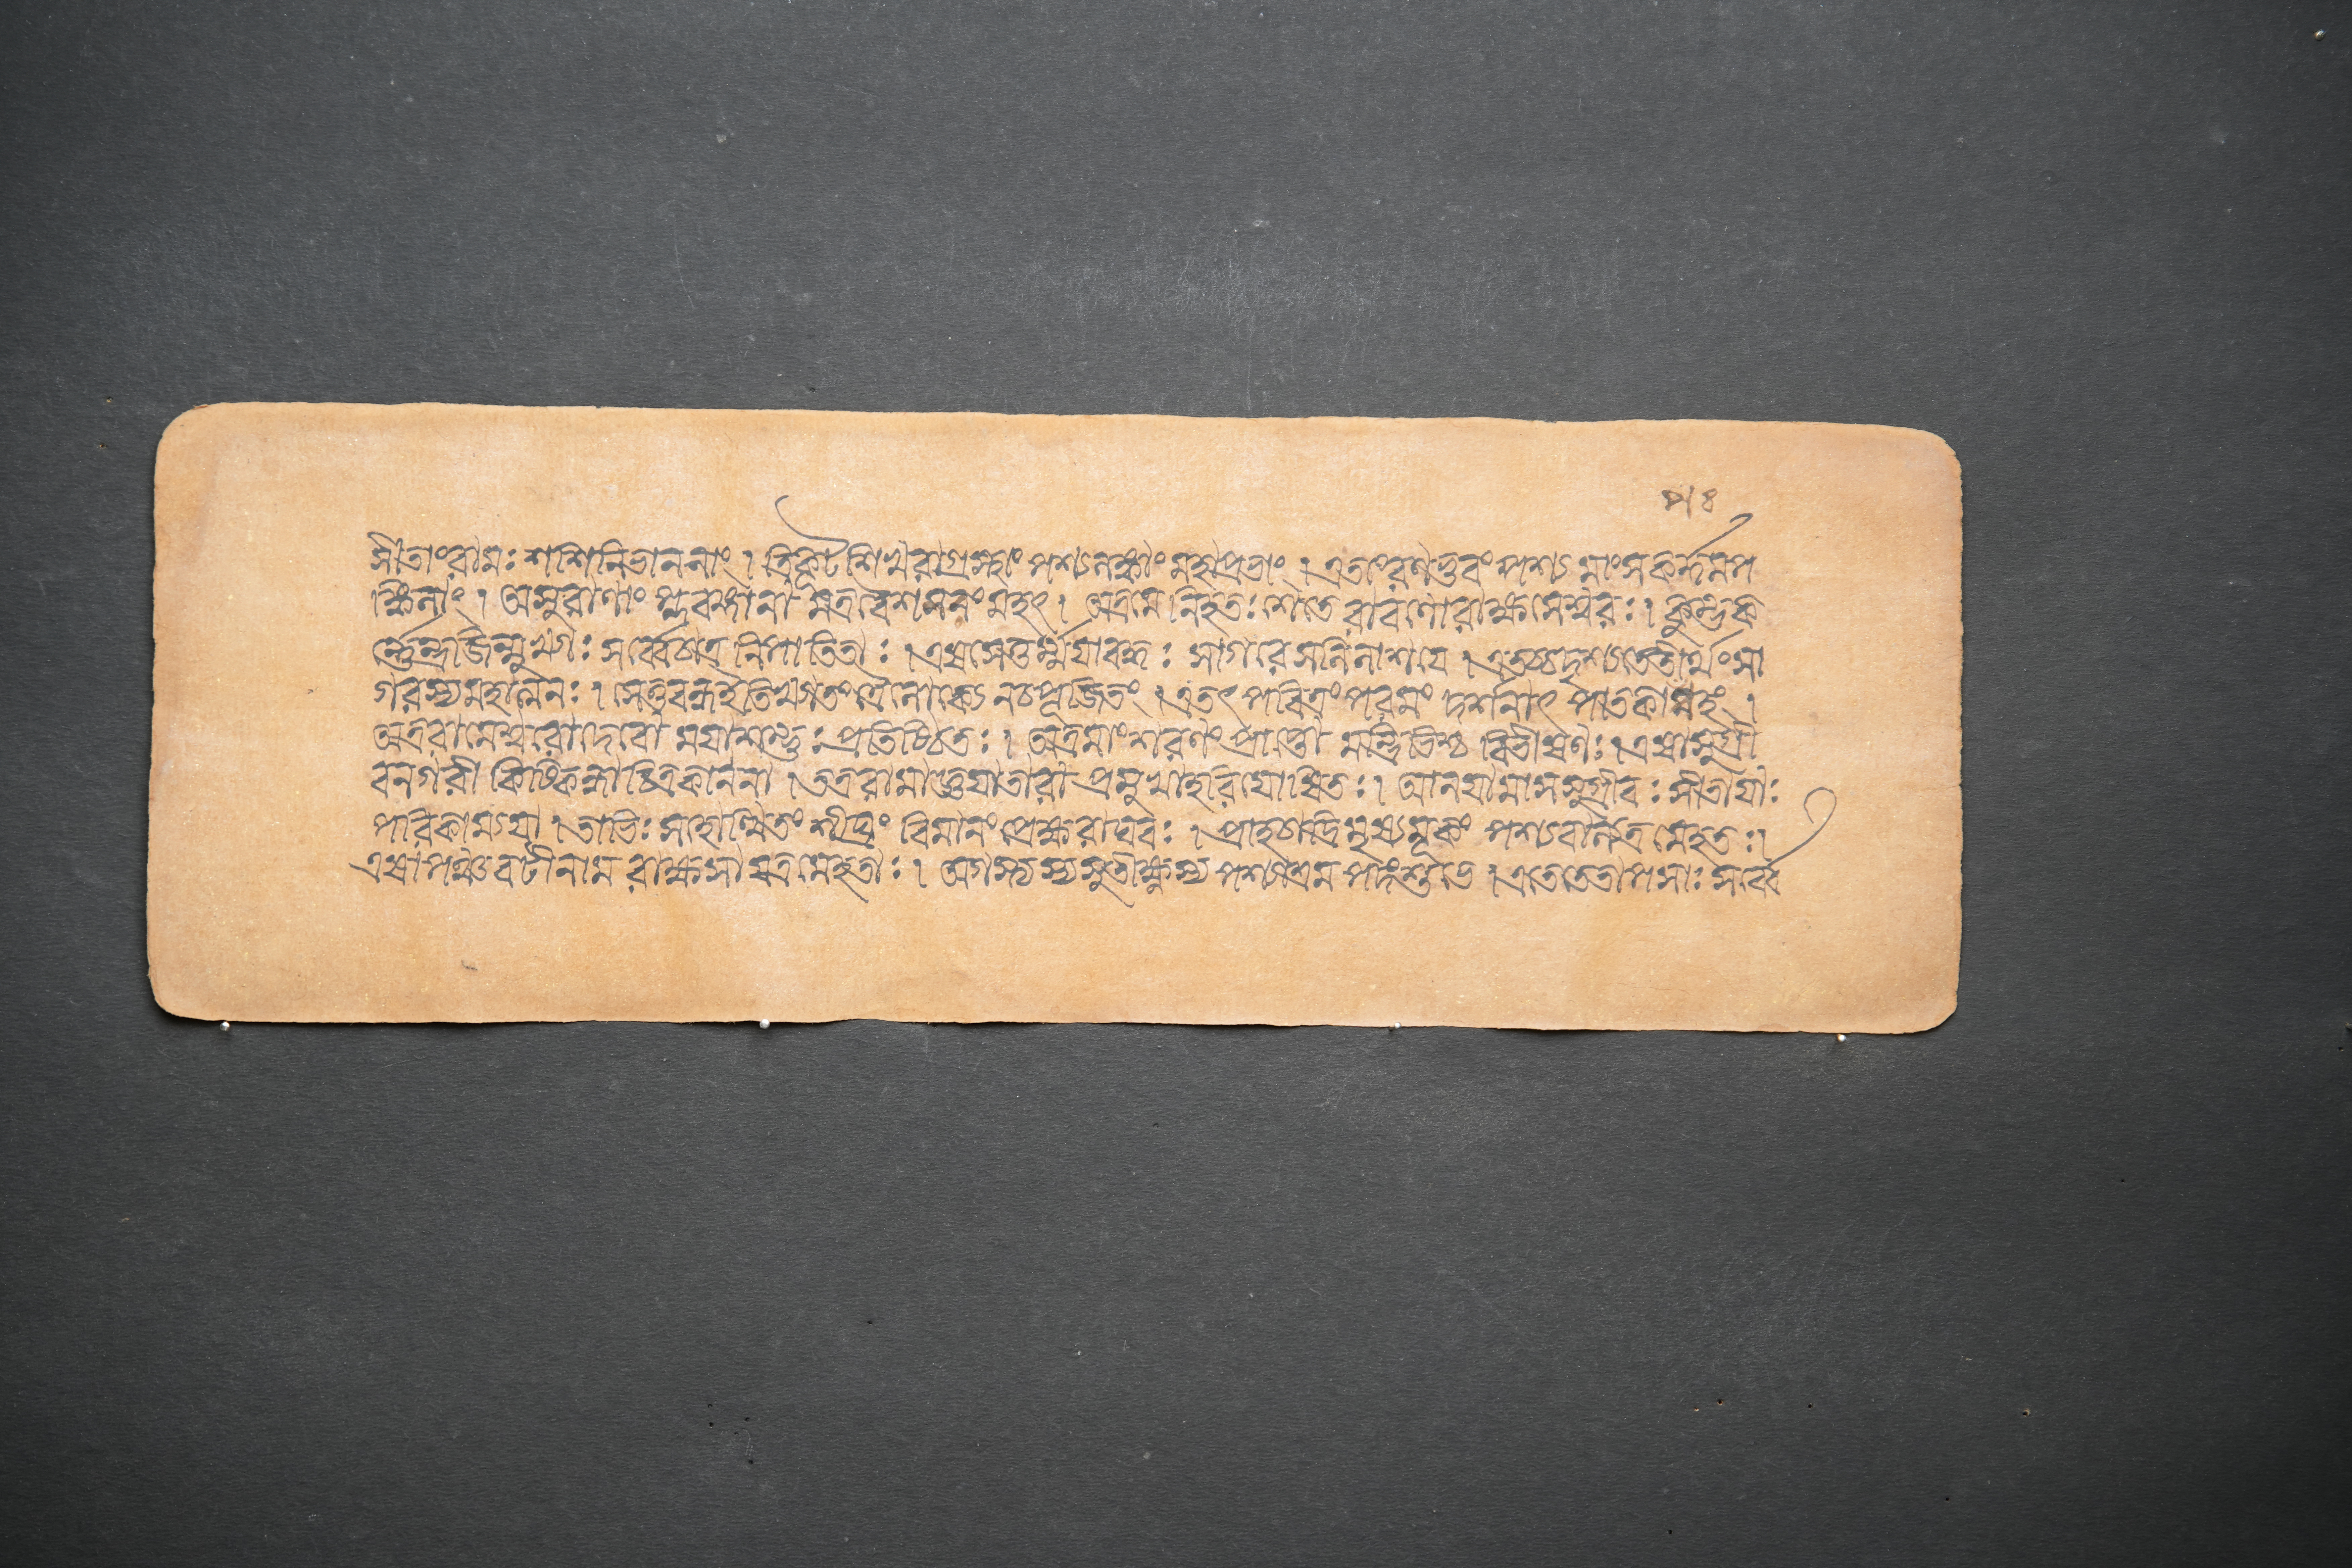 সীতাংরামঃ শশিনিভাননাং । ত্রিকূটশিখরাগ্রস্থাং পশ্যলঙ্কাং মহাপ্রভাং । এতাংরণভুবংপশ্য মাংসকর্দ্দমপ
ঙ্কিলাং । অসুরাণাং প্লবঙ্গানামত্রবৈশসনংমহৎ । অত্রমে নিহতঃ শেতে রাবণোরাক্ষসেশ্বরঃ । কুম্ভক
র্ণেন্দ্রজিন্মুখ্যাঃ সর্ব্বেচাত্র নিপাতিতাঃ । এষসেতুর্ম্ময়াবদ্ধঃ সাগরেসলিলাশয়ে । এতচ্চদৃশ্যতেতীর্থংসা
গরস্যমহাত্মনঃ । সেতুবন্ধইতিখ্যাতং ত্রৈলোক্যেনচপূজিতং । এতৎ পবিত্রং পরমং দর্শনাৎ পাতকাপহং ।
অত্ররামেশ্বরোদেবো ময়াশম্ভুঃ প্রতিষ্ঠিতঃ । অত্রমাং শরণং প্রাপ্তো মন্ত্রিভিশ্চ বিভীষণঃ । এষাসুগ্রী
বনগরী কিষ্কিন্ধাচিত্রকাননা । তত্ররামাজ্ঞয়াতারা প্রমুখাহরিযোষিতঃ । আনয়ামাসসুগ্রীবঃ সীতায়াঃ
পরিকাম্যয়া । তাভিঃ সহোত্থিতং শীঘ্রং বিমানং প্রেক্ষ্যরাঘবঃ । প্রাহচাদ্রিমৃষ্যমূকং পশ্যবাল্যত্র মেহতঃ ।
এষাপঞ্চবটীনাম রাক্ষসাযত্রমেহতাঃ । অগস্ত্যস্যসুতীক্ষ্ণস্য পশ্যাশ্রম পদেশুভে । এতেতেতাপসাঃ সর্ব্বে